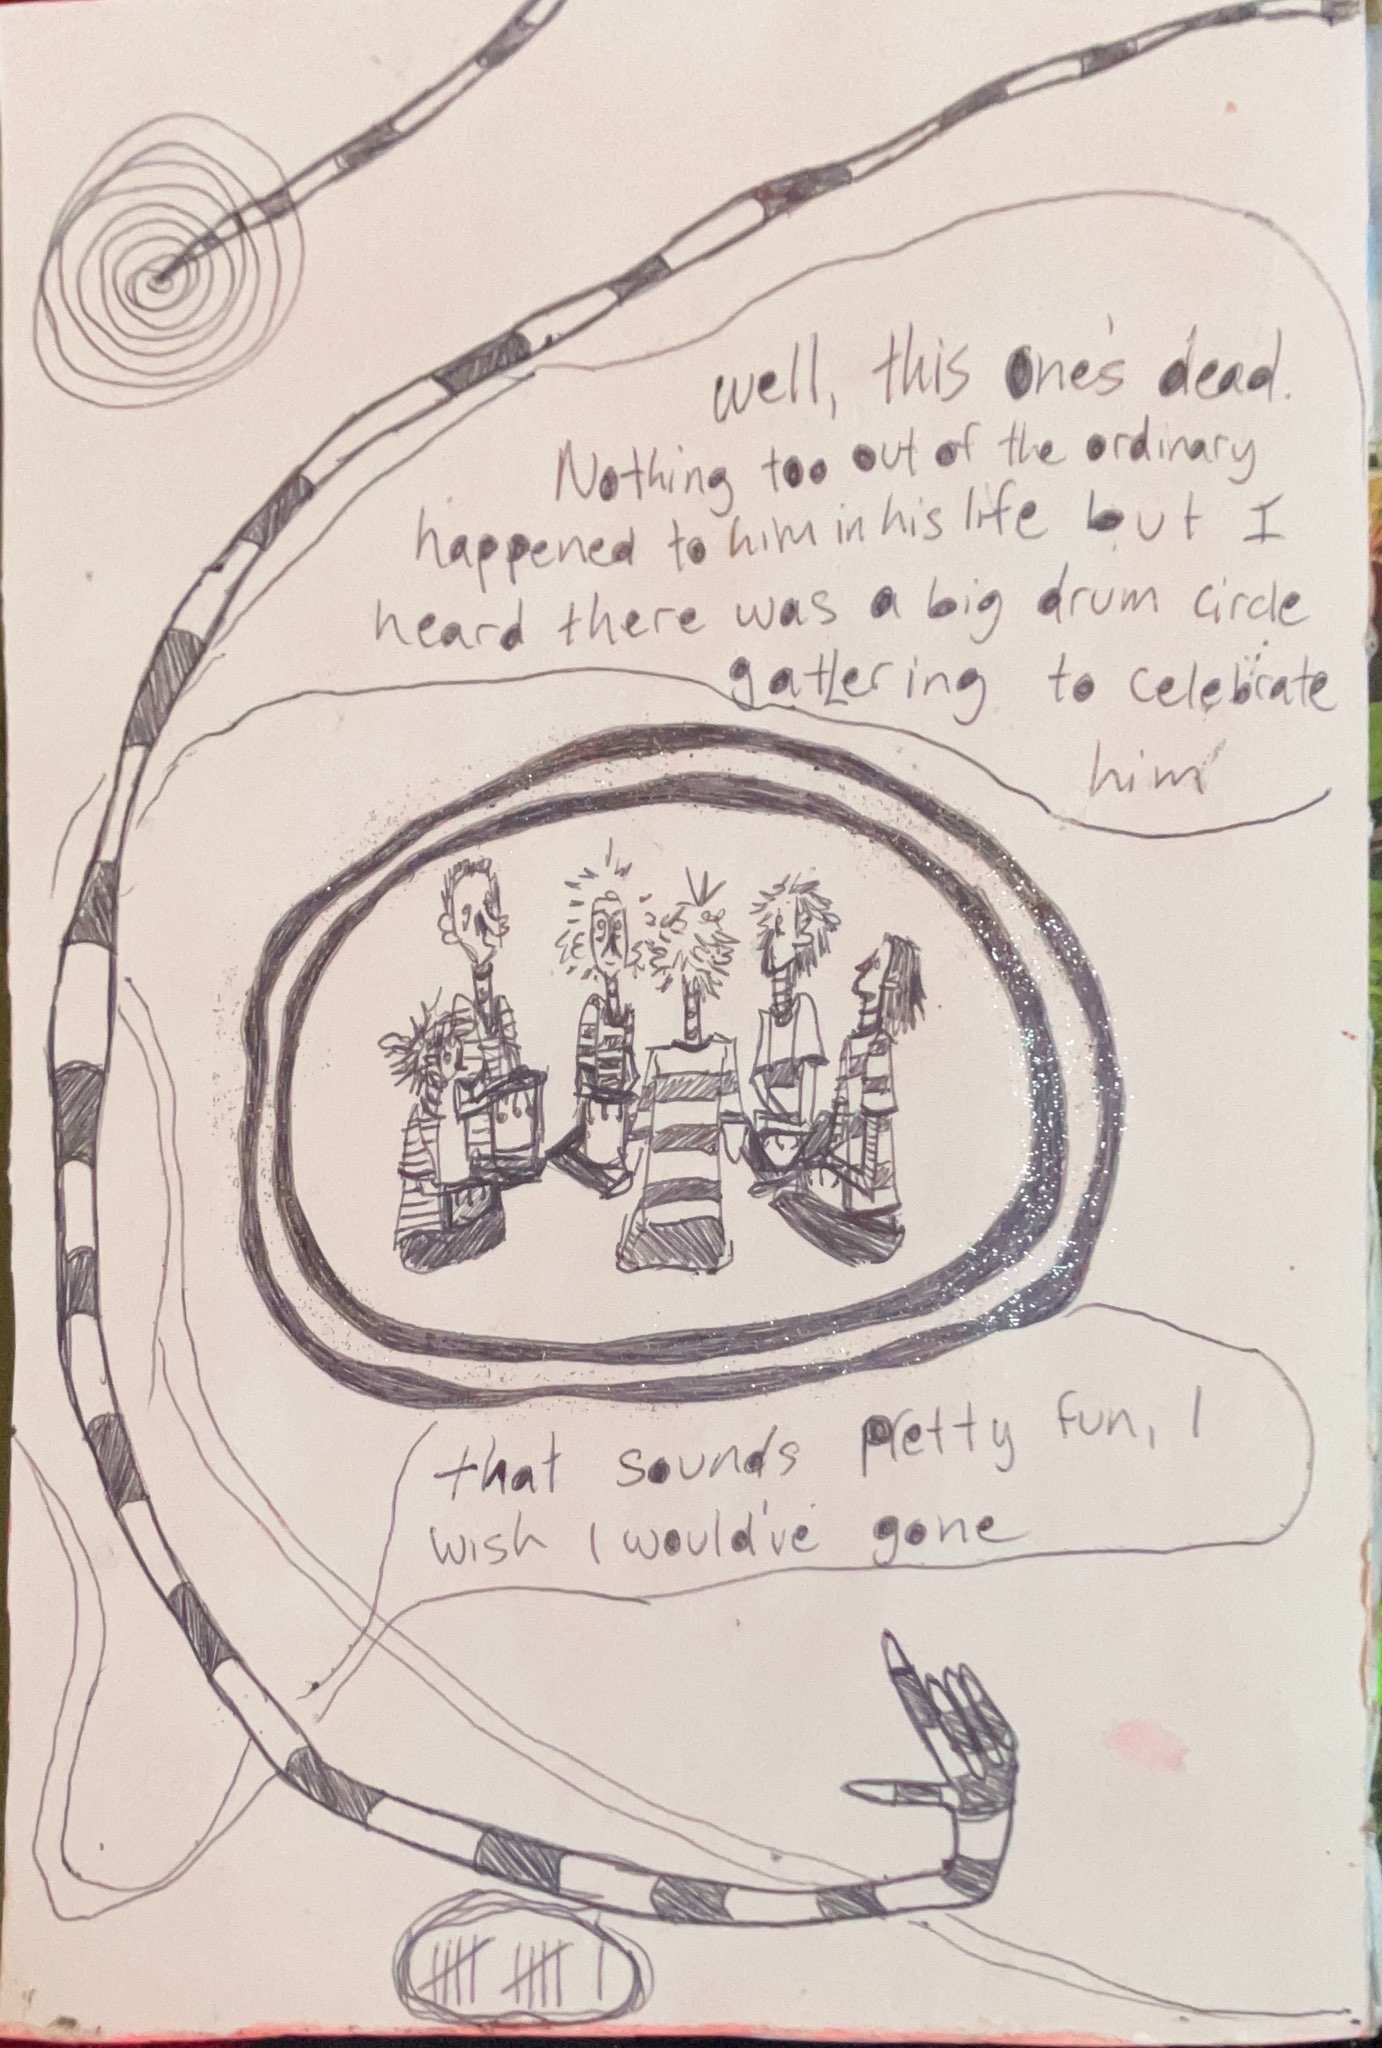 well, this one's dead.
Nothing too out of the ordinary
happened to him in his life but I
heard there was a big drum circle
gathering to celebrate
him
that sounds pretty fun, I
wish I would've gone